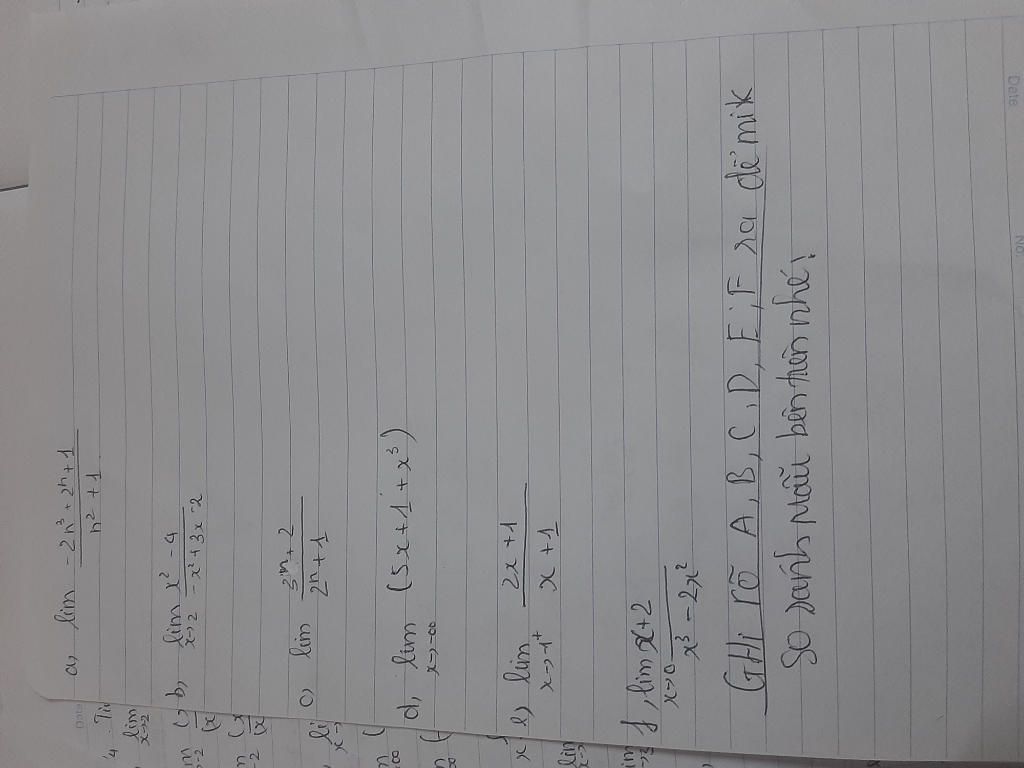 a, lim -2n³ + 2n + 1
n² + 1
b, lim x² - 4
x→2 -x² + 3x - 2
c, lim 3ⁿ + 2
2ⁿ + 1
d, lim (5x + 1 + x³)
x→-∞
e, lim 2x + 1
x→-1⁺ x + 1
f, lim x + 2
x→0 x³ - 2x²
GHi rõ A, B, C, D, E, F ra để mik
So sánh mẫu bên trên nhé!
Date
No.